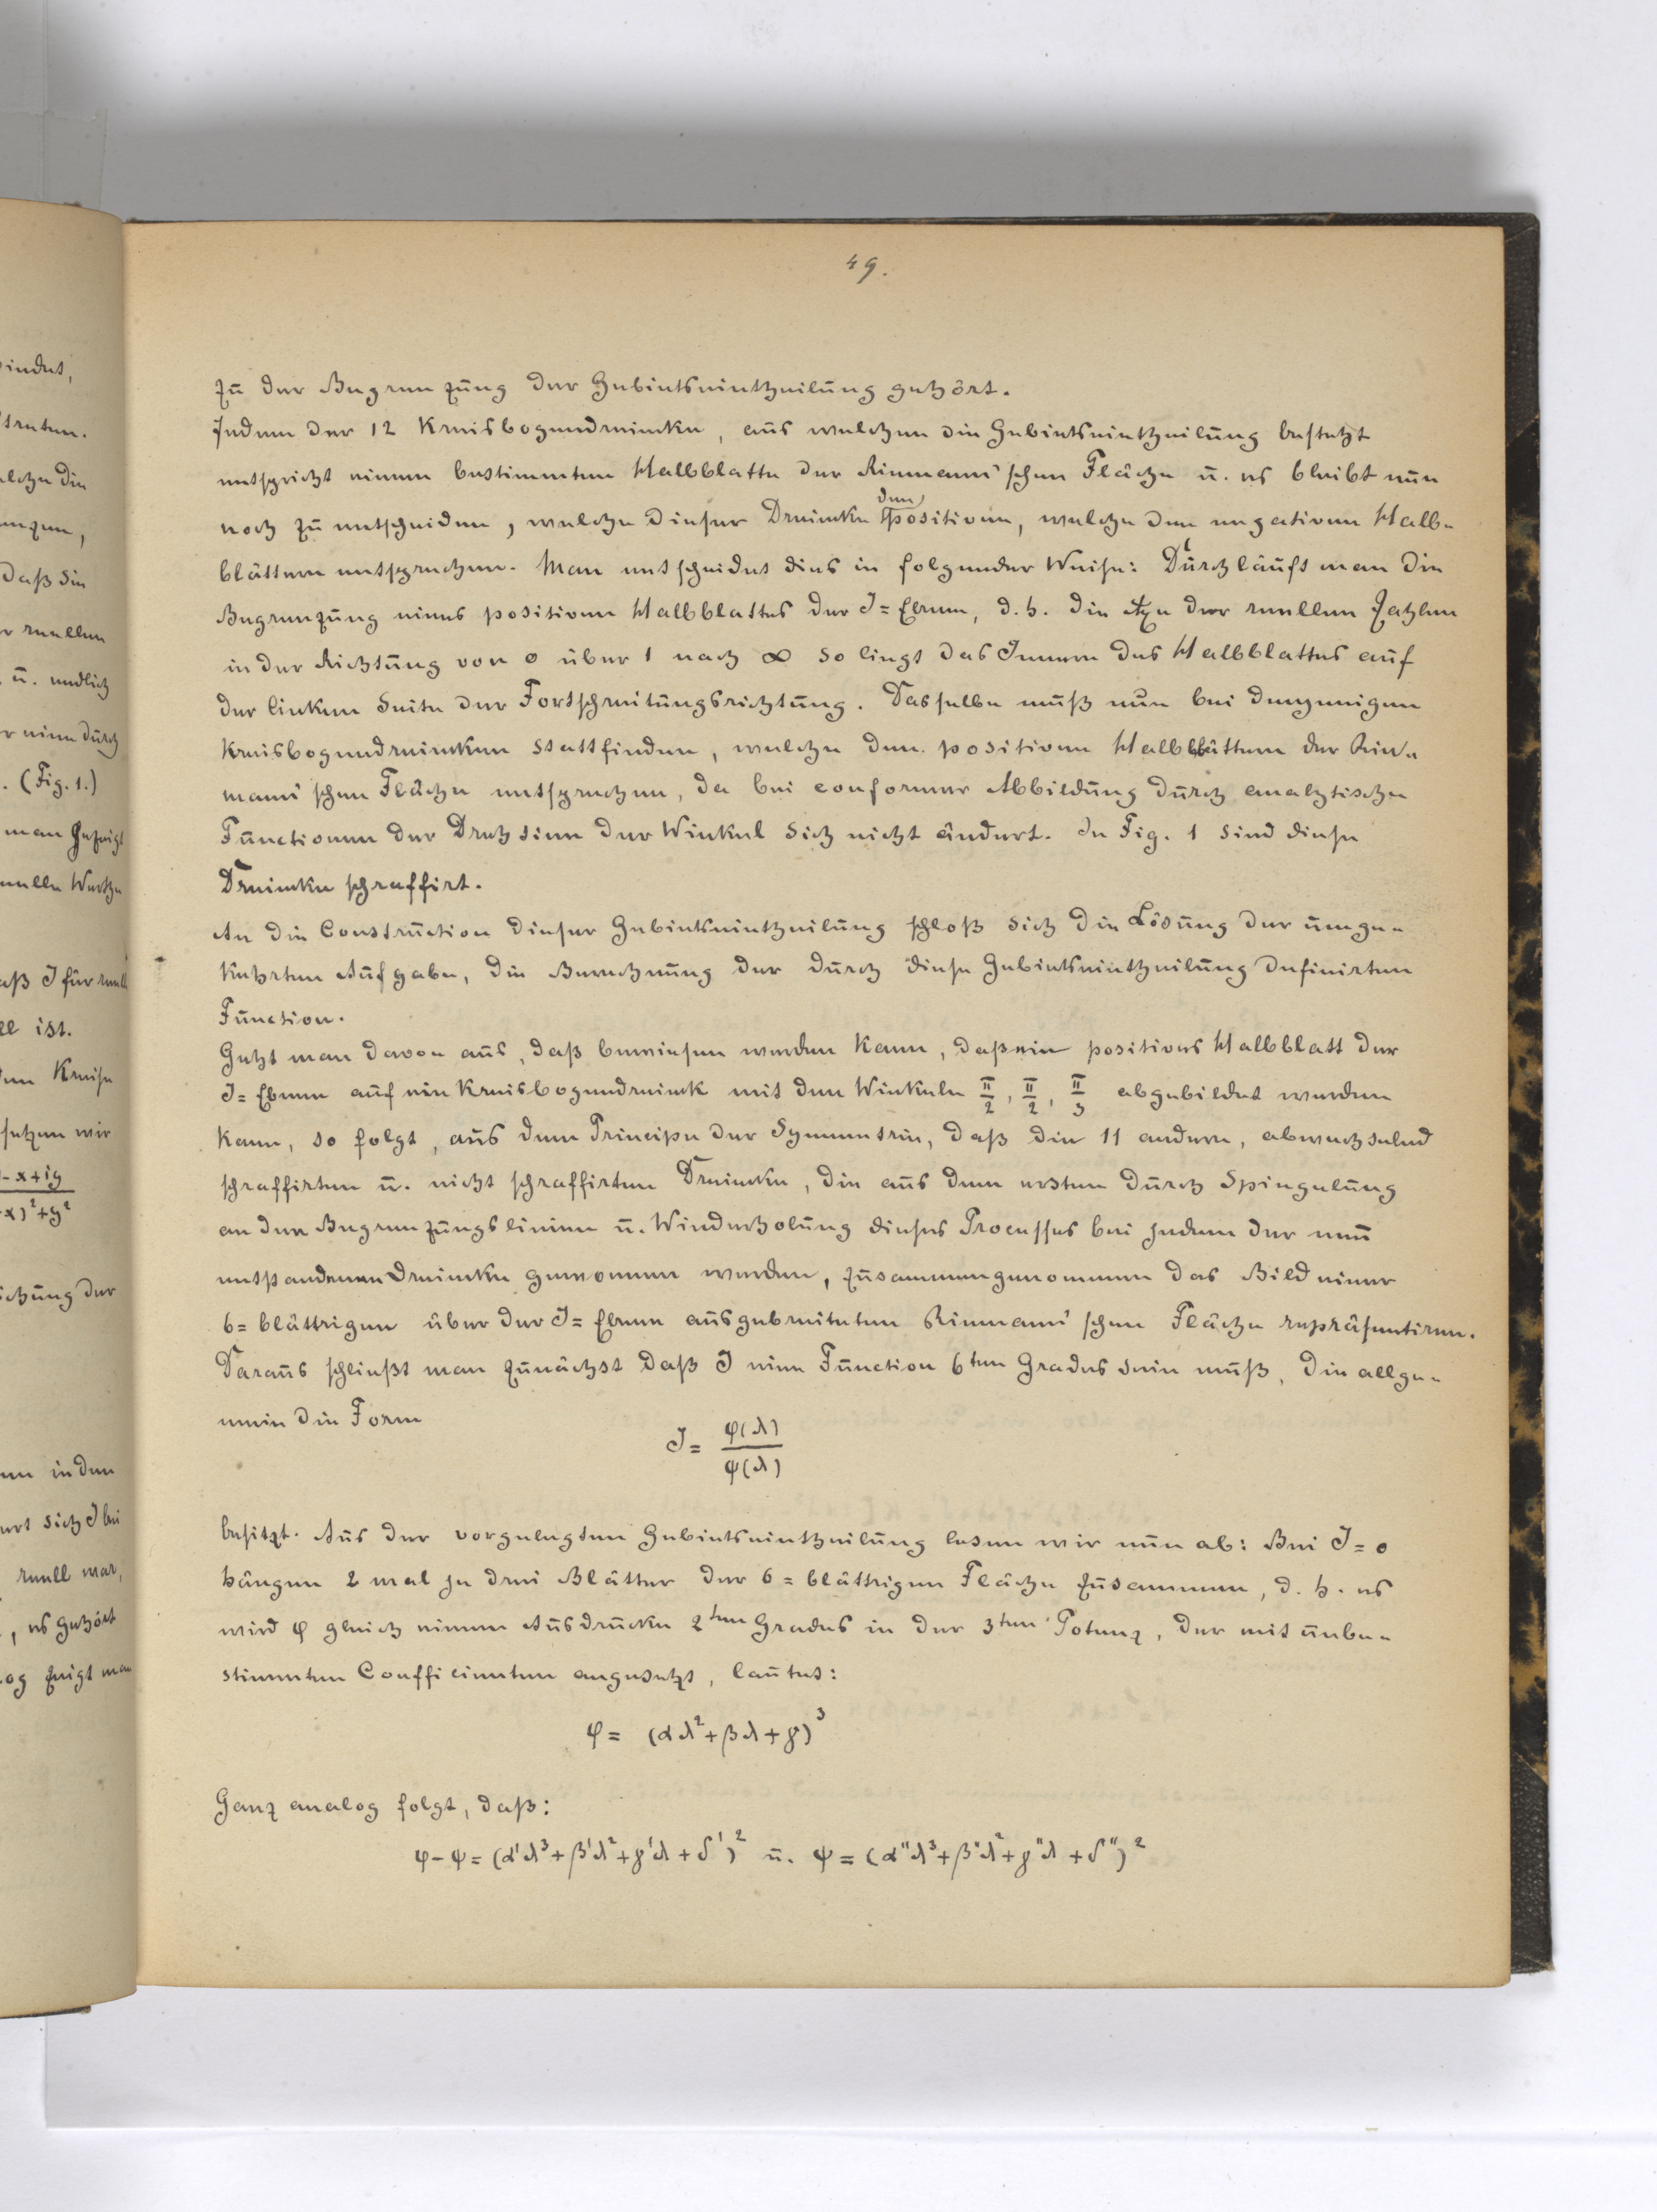 49.
zu der Begrenzung der Gebietseintheilung gehört.
Jedem der 12 Kreisbogendreiecke, aus welchen die Gebietseintheilung besteht
entspricht einem bestimmten Halbblatte der Riemann'schen Fläche u. es bleibt nun
noch zu entscheiden, welche dieser Dreiecke den positiven, welche den negativen Halb=
blättern entsprechen. Man entscheidet dies in folgender Weise: Durchläuft man die
Begrenzung eines positiven Halbblattes der J=Ebene, d.h. die Axe der reellen Zahlen
in der Richtung von 0 über 1 nach ∞ so liegt das Innere des Halbblattes auf
der linken Seite der Fortschreitungsrichtung. Dasselbe muß nun bei denjenigen
Kreisbogendreiecken stattfinden, welche den positiven Halbblättern der Rie=
mann'schen Fläche entsprechen, da bei conformer Abbildung durch analytische
Functionen der Drehsinn der Winkel sich nicht ändert. In Fig. 1 sind diese
Dreiecke schraffirt.
An die Construction dieser Gebietseintheilung schloß sich die Lösung der umge=
kehrten Aufgabe, die Berechnung der durch diese Gebietseintheilung definirten
Function.
Geht man davon aus, daß bewiesen werden kann, daß ein positives Halbblatt der
J=Ebene auf ein Kreisbogendreieck mit den Winkeln π/2, π/2, π/3 abgebildet werden
kann, so folgt, aus dem Principe der Symmetrie, daß die 11 andern, abwechselnd
schraffirten u. nicht schraffirten Dreiecke, die aus dem ersten durch Spiegelung
an den Begrenzungslinien u. Wiederholung dieses Processes bei jedem der neu
entstandenen Dreiecke gewonnen werden, zusammengenommen das Bild einer
6=blättrigen über der J=Ebene ausgebreiteten Riemann'schen Fläche repräsentiren.
Daraus schließt man zunächst daß J eine Function 6ten Grades sein muß, die allge=
mein die Form
J = φ(λ)/ψ(λ)
besitzt. Aus der vorgelegten Gebietseintheilung lesen wir nun ab: Bei J=0
hängen 2 mal je drei Blätter der 6=blättrigen Fläche zusammen, d.h. es
wird φ gleich einem Ausdrucke 2ten Grades in der 3ten Potenz, der mit unbe=
stimmten Coefficienten angesetzt, lautet:
φ = (αλ²+βλ+γ)³
Ganz analog folgt, daß:
φ-ψ = (α'λ³+β'λ²+γ'λ+δ')² u. ψ = (α"λ³+β"λ²+γ"λ+δ")²